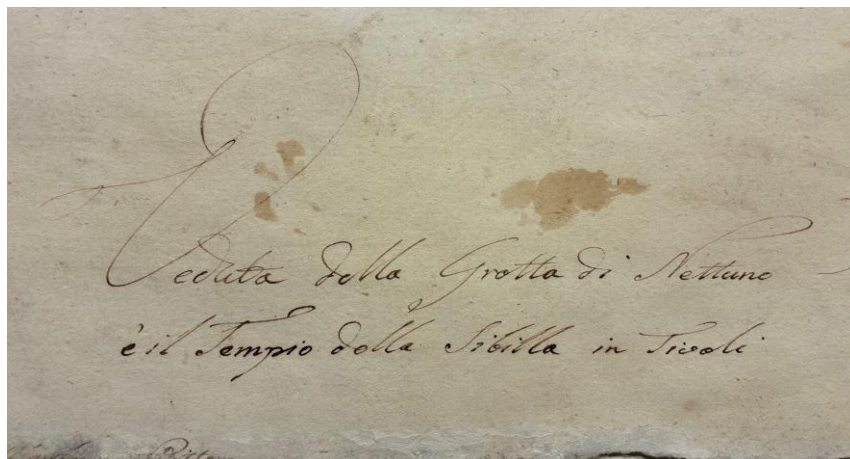 Veduta della Grotta di Nettuno
è il Tempio della Sibilla in Tivoli